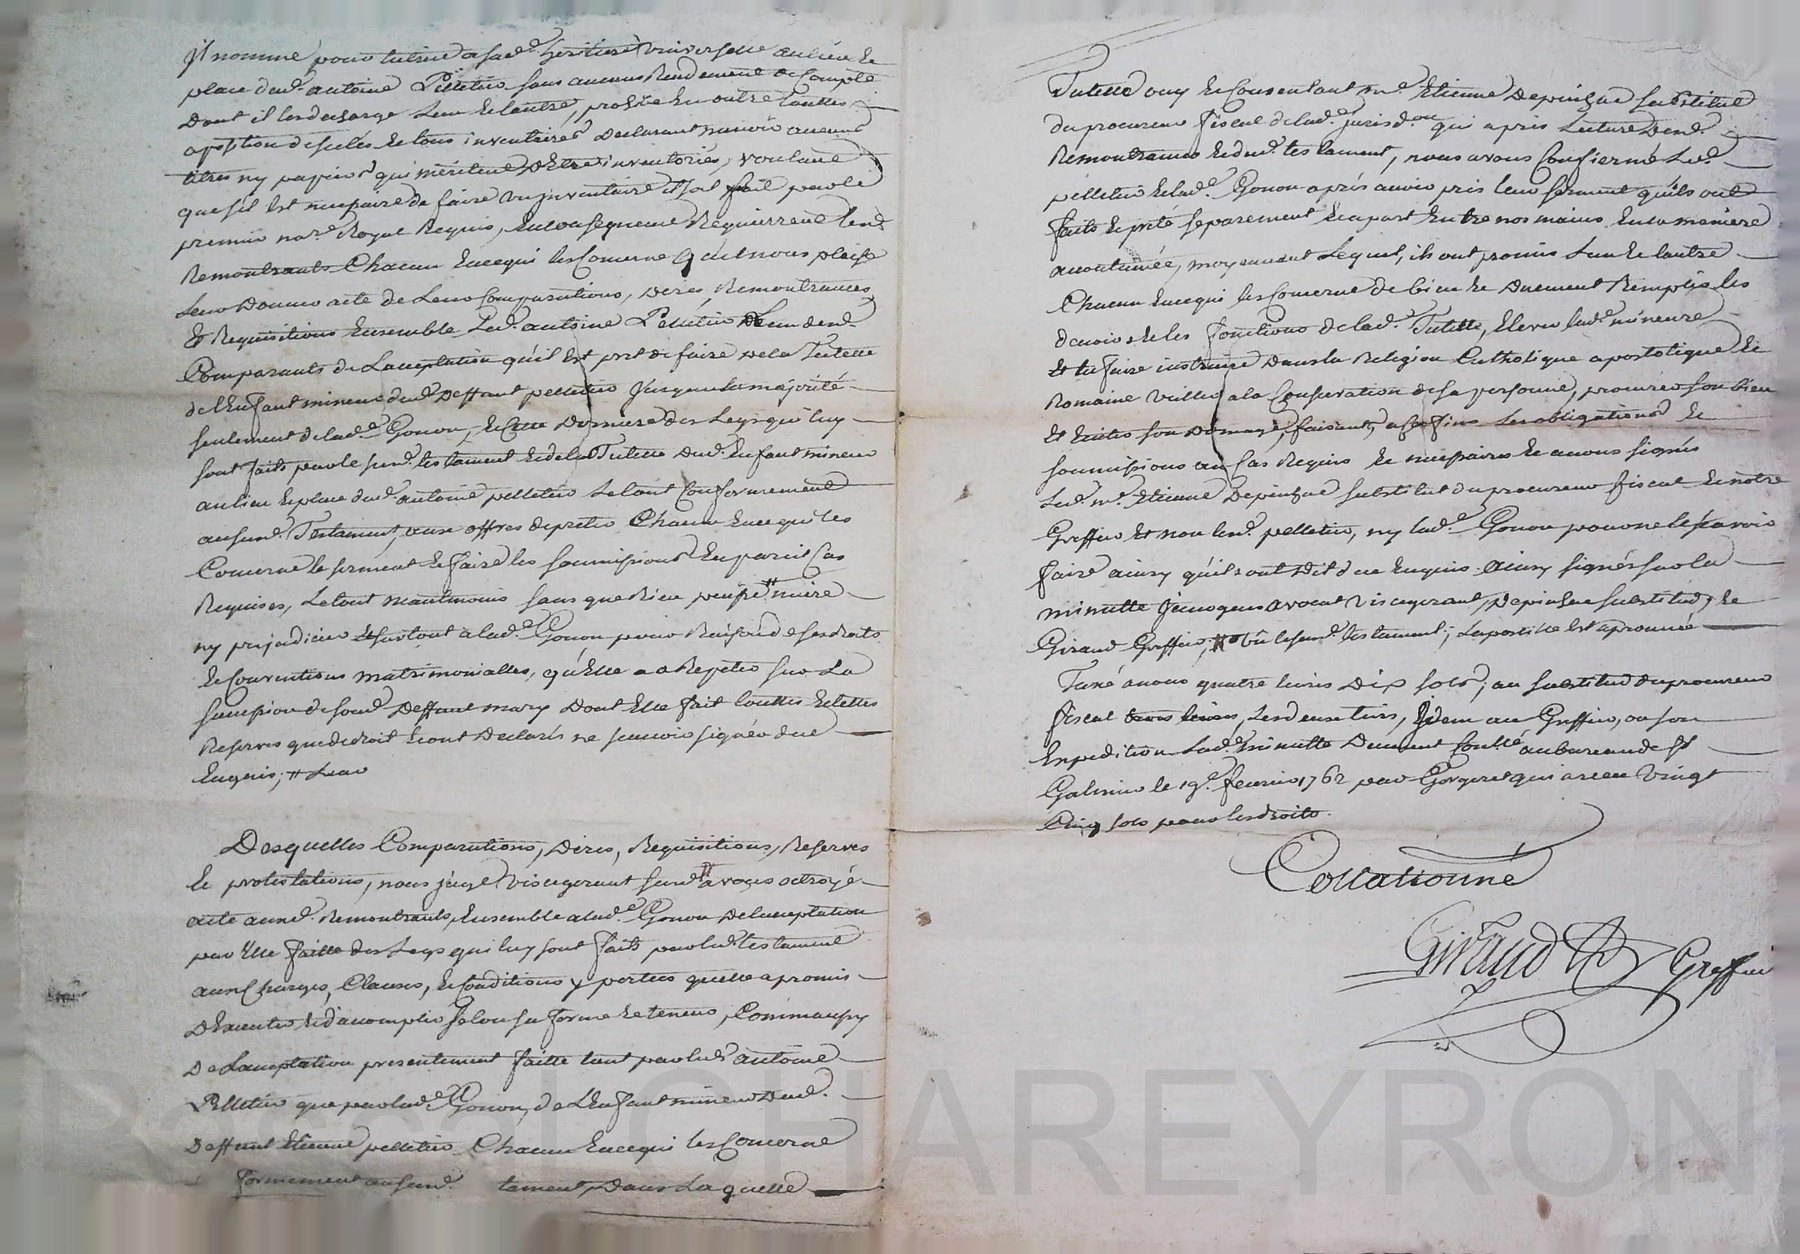 Il nomme pour tutrice a sad.e heritiere universelle au lieu et
place dud. antoine Pelletier sans aucuns Rendement de Compte
Dont il les decharge Lun et lautre, prohibe En outre touttes
aposition de scelés et tous inventaires Declarant navoir aucuns
titres ny papiers qui méritent D'Etre inventoriés, voulant
que s'il Est necessaire de faire un inventaire il soit fait par le
premier no.re Royal Requis, En consequence Requierrent lesd.
Remontrants Chacun En ce qui les Concerne qu'il nous plaise
Leur Donner acte de Leurs Comparutions, Dires, Remontrances
Et Requisitions Ensemble Led. antoine Pelletier Lun desd.
Comparants de Lacceptation qu'il Est prêt de faire de la Tutelle
de l'Enfant mineur dud. Deffunt pelletier Jusqu'a sa majorité
seulement de lad.e Gonon, et Cette Derniere des Legs qui luy
sont faits par le susd. testament et de la Tutelle dud. Enfant mineur
au lieu et place dud. antoine pelletier Le tout Conformement
au susd. Testament, aux offres de preter Chacun En ce qui les
Concerne le serment et faire les soumissions En pareil Cas
Requises, Le tout neantmoins sans que Rien puisse # nuire
ny prejudicier et surtout a lad.e Gonon pour Raison de ses droits
et Conventions matrimonialles, qu'Elle a a Repeter sur La
succession de sond. Deffunt mary Dont Elle fait touttes et telles
Reserves que de droit Et ont Declarés ne scavoir signer de ce
Enquis; # Leur
Desquelles Comparutions, Dires, Requisitions, Reserves
et protestations, nous juge Viscegerant susd. # avons octroyé
acte ausd. Remontrants, Ensemble a lad.e Gonon De Lacceptation
par Elle faitte des Legs qui luy sont faits par led. testament
aux Charges, Clauses, et Conditions y portées quelle a promis
D'Executer et d'accomplir selon sa forme et teneur, Comm'aussy
De Lacceptation presentement faitte tant par led. antoine
Pelletier que par lad.e Gonon, de L'Enfant mineur Dud.
Deffunt Etienne pelletier Chacun En ce qui les Concerne
formement au susd. tament, Dans Laquelle
Tutelle ouy et Consentant m.e Etienne Depinhac substitut
du procureur fiscal de lad.e jurisd.on qui apres Lecture Desd.
Remontrances et dud. testament, nous avons Confirmé Led.
pelletier et lad.e Gonon après avoir pris leur serment qu'ils ont
faits et preté separement et apart Entre nos mains En la maniere
accoutumée, moyennant Lequel, ils ont promis Lun et Lautre
Chacun En ce qui les Concerne de bien et Duement Remplir les
devoirs et les fonctions de lad.e Tutelle, Elever lad.e mineure
Et la faire instruire Dans la Religion Catholique apostolique et
Romaine Veiller a la Conservation de sa personne, procurer son bien
Et Eviter son Domage, faisant, a ses fins Les obligations et
soumissions au Cas Requis et necessaires et avons signés
Led. m.e Etienne Depinhac substitut du procureur fiscal et notre
Greffier Et non led. pelletier, ny lad.e Gonon pour ne le scavoir
faire ainsy qu'ils ont Dit de ce Enquis. Ainsy signés sur la
minutte avocat viscegerant, Depinhac substitud, et
Giraud Greffier, # Vû le susd. testament; Lapostille est aprouvée
Taxé a nous quatre livres Dix sols; au substitud du procureur
fiscal trois livres, Les deux tiers, Idem au Greffier, ou son
Expedition Lad.e minutte Duement Contlé au bureau de St
Galmier le 19.e fevrier 1762 par Gorgeret qui a receu vingt
Cinq sols pour les droits.
Collationné
Giraud Greffier
Pascal CHAREYRON